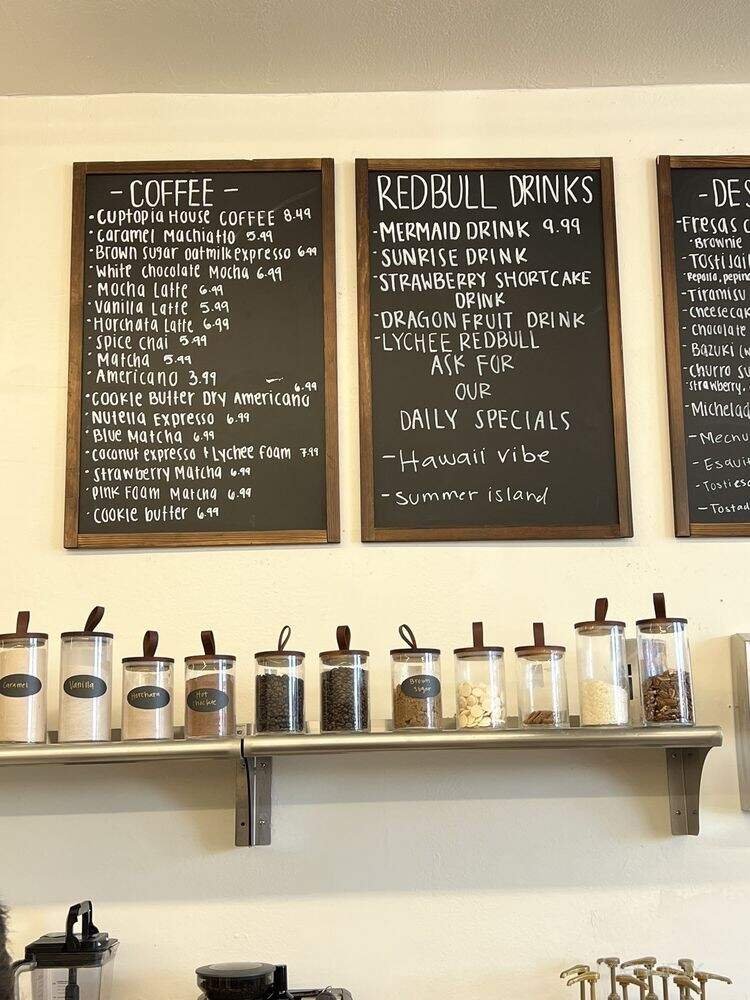 - COFFEE -
• Cuptopia House COFFEE 8.49
• Caramel Machiatto 5.49
• Brown sugar oatmilk expresso 6.49
• White chocolate Mocha 6.49
• Mocha Latte 6.49
• Vanilla Latte 5.49
• Horchata Latte 6.49
• Spice chai 5.49
• Matcha 5.49
• Americano 3.99
• Cookie Butter Dry Americano 6.99
• Nutella Expresso 6.99
• Blue Matcha 6.99
• coconut expresso + Lychee foam 7.99
• Strawberry Matcha 6.99
• Pink Foam Matcha 6.99
• Cookie butter 6.99
REDBULL DRINKS
-MERMAID DRINK 9.99
-SUNRISE DRINK
-STRAWBERRY SHORTCAKE
DRINK
-DRAGON FRUIT DRINK
-LYCHEE REDBULL
ASK FOR
OUR
DAILY SPECIALS
-Hawaii vibe
-Summer island
-DES
-Fresas c
• Brownie
-Tostijail
Repollo, pepin
-Tiramisu
-Cheesecak
-Chocolate
-Bazuki (w
-Churro su
strawberry,
-Michelad
-Mechu
-Esquit
-Tostiesq
-Tostad
Caramel
Vanilla
Horchata
Hot
Choclate
Brown
Sugar